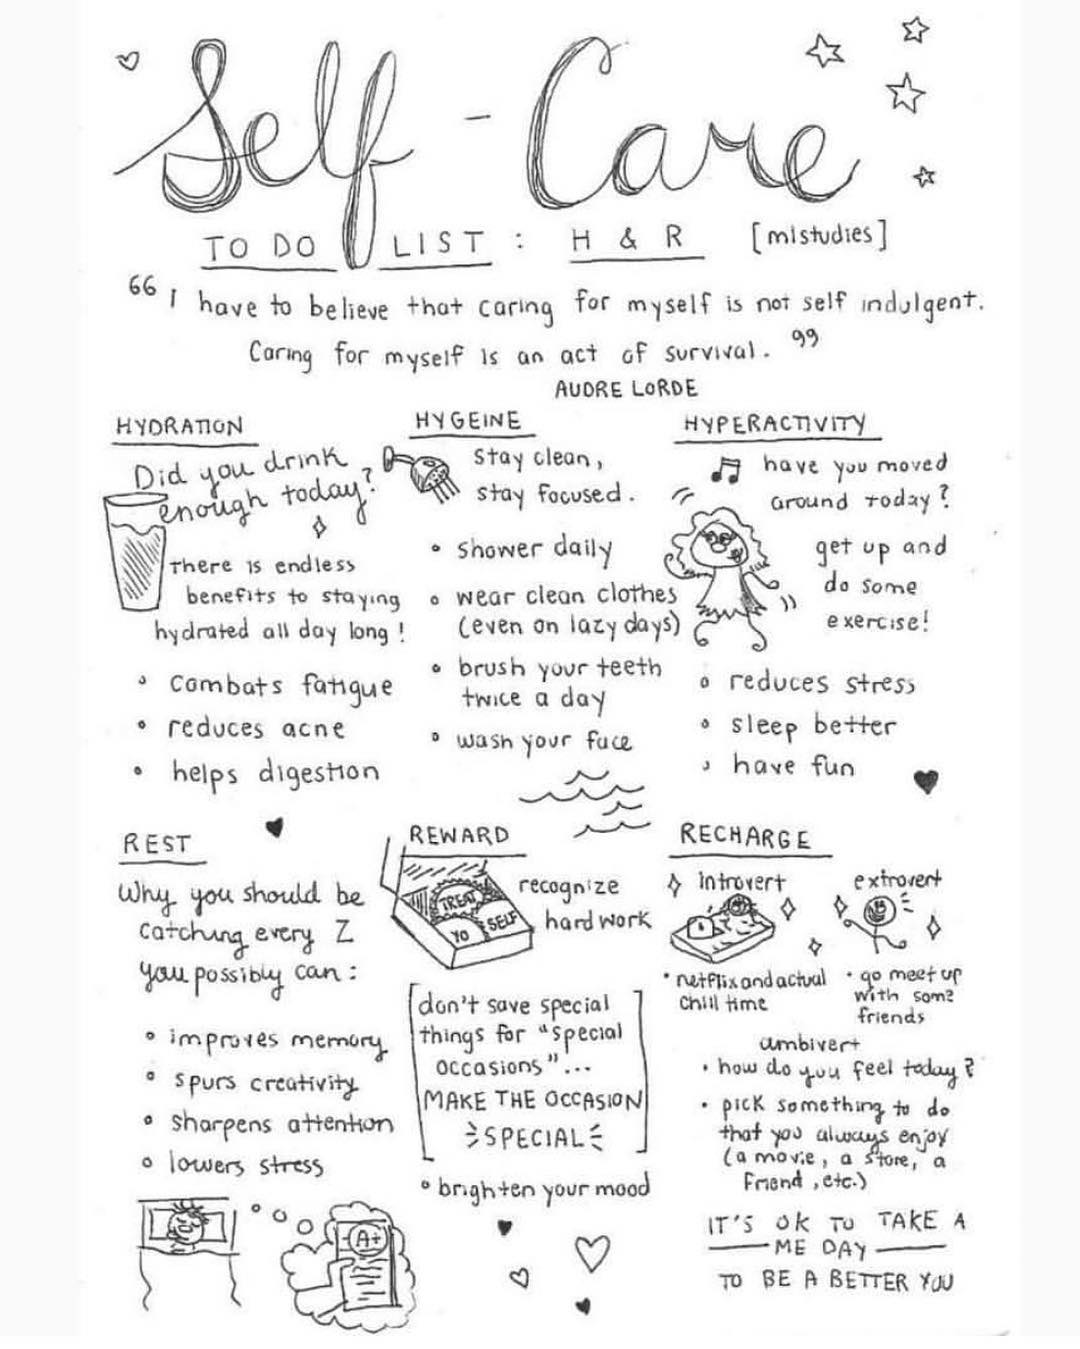 Self - Care
TO DO LIST : H & R [mistudies]
“ I have to believe that caring for myself is not self indulgent.
Caring for myself is an act of survival. ”
AUDRE LORDE
HYDRATION
Did you drink
enough today?
There is endless
benefits to staying
hydrated all day long !
• combats fatigue
• reduces acne
• helps digestion
HYGEINE
stay clean,
stay focused.
• shower daily
• wear clean clothes
(even on lazy days)
• brush your teeth
twice a day
• wash your face
HYPERACTIVITY
have you moved
around today?
get up and
do some
exercise!
• reduces stress
• sleep better
• have fun
REST
Why you should be
catching every Z
you possibly can:
• improves memory
• spurs creativity
• sharpens attention
• lowers stress
A+
REWARD
TREAT
YO SELF
recognize
hard work
[don't save special
things for "special
occasions"...
MAKE THE OCCASION
SPECIAL]
• brighten your mood
RECHARGE
introvert
• netflix and actual
chill time
extrovert
• go meet up
with some
friends
ambivert
• how do you feel today?
• pick something to do
that you always enjoy
(a movie, a store, a
friend, etc.)
IT'S OK TO TAKE A
ME DAY
TO BE A BETTER YOU